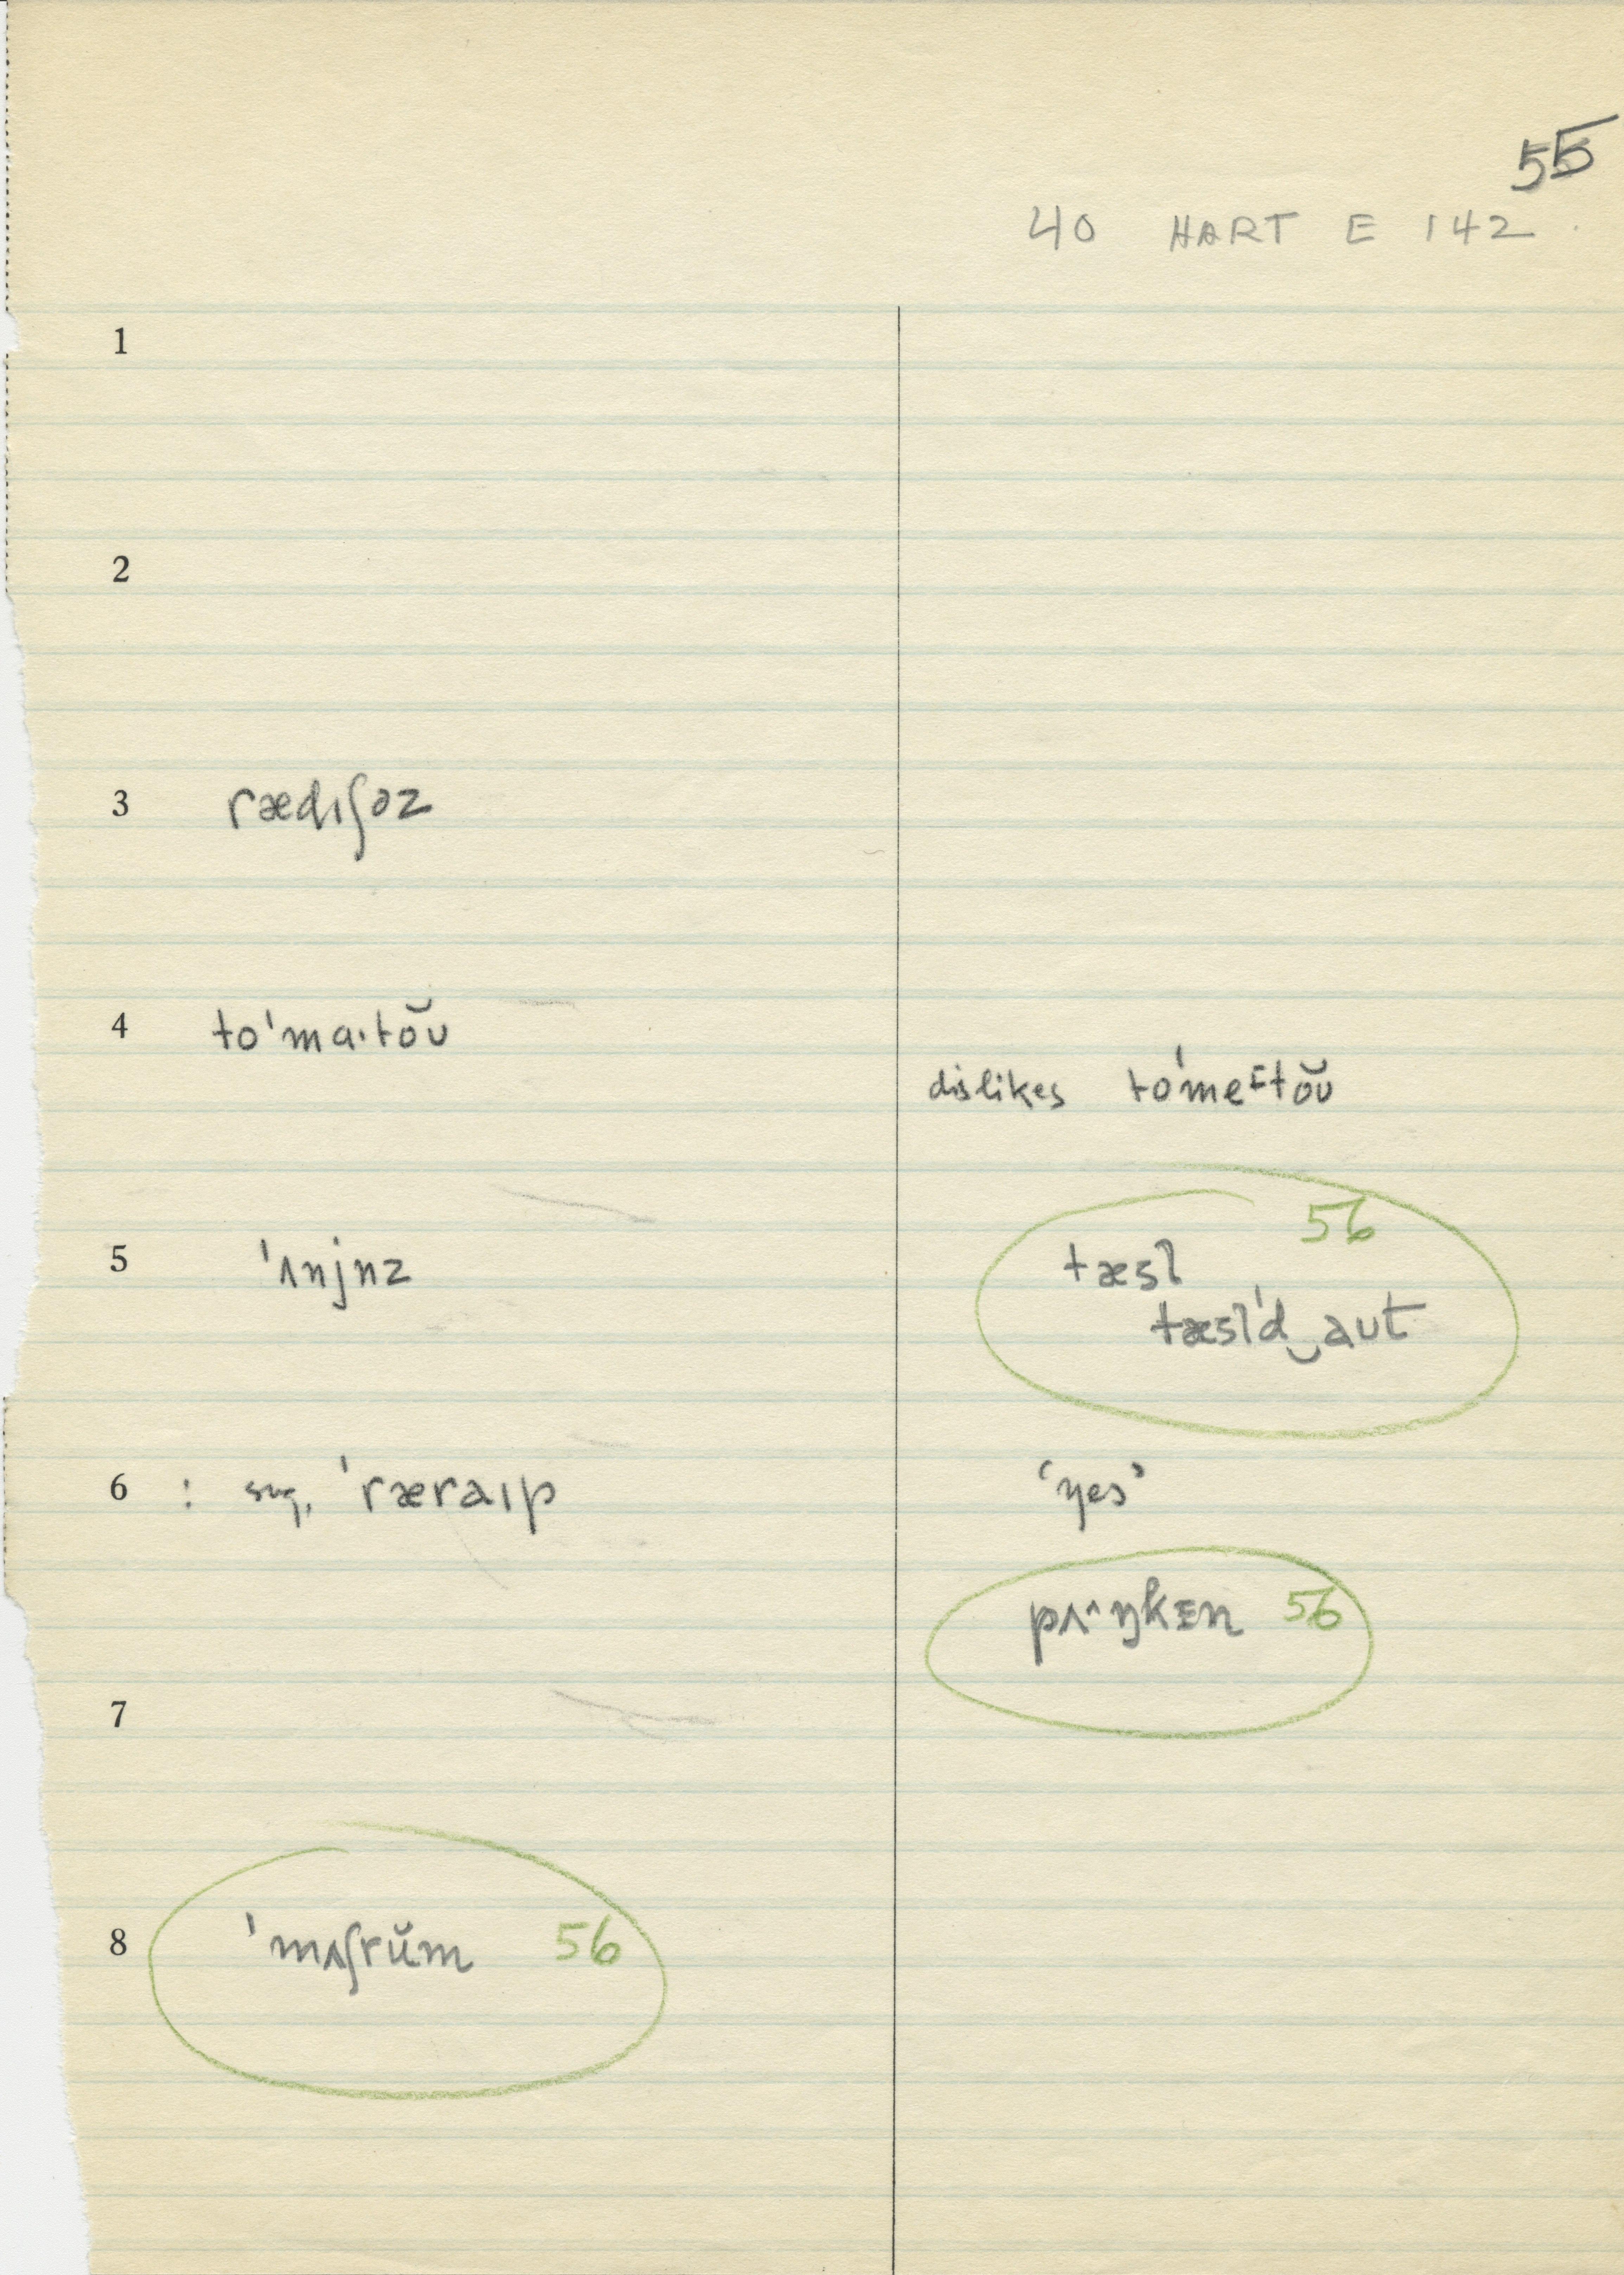 55
40 HART E 142.
1
2
3 rædıʃəz
4 to'ma·tŏʊ
dislikes to'meᶦtŏʊ
5 'ʌnjnz
56
tæsl̩
tæsl̩'d‿aut
6 : sug. 'ræraıp
'yes'
pʌ^ŋkɪn 56
7
8 'mʌʃrŭm 56